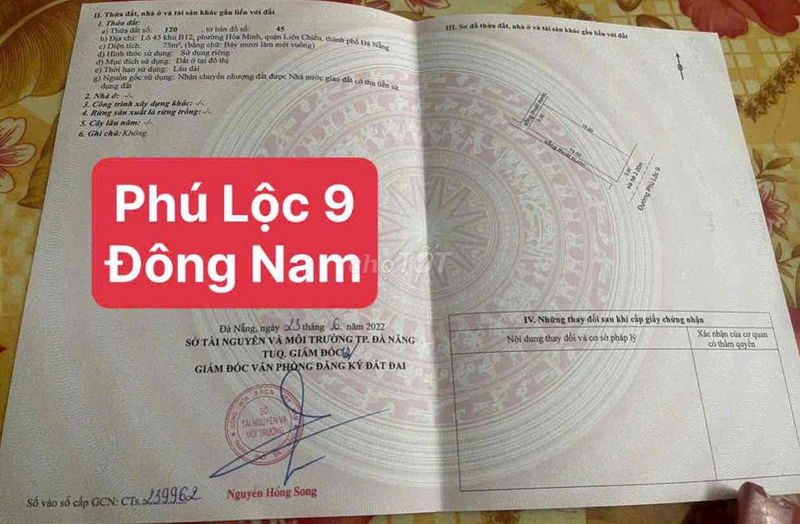 II. Thửa đất, nhà ở và tài sản khác gắn liền với đất
1. Thửa đất:
a) Thửa đất số: 120 , tờ bản đồ số: 45
b) Địa chỉ: Lô 45 khu B12, phường Hòa Minh, quận Liên Chiểu, thành phố Đà Nẵng
c) Diện tích: 75m², (bằng chữ: Bảy mươi lăm mét vuông)
d) Hình thức sử dụng: Sử dụng riêng
đ) Mục đích sử dụng: Đất ở tại đô thị
e) Thời hạn sử dụng: Lâu dài
g) Nguồn gốc sử dụng: Nhận chuyển nhượng đất được Nhà nước giao đất có thu tiền sử
dụng đất
2. Nhà ở: -/-
3. Công trình xây dựng khác: -/-
4. Rừng sản xuất là rừng trồng: -/-
5. Cây lâu năm: -/-
6. Ghi chú: Không.
Phú Lộc 9
Đông Nam
Đà Nẵng, ngày 23 tháng 6 năm 2022
SỞ TÀI NGUYÊN VÀ MÔI TRƯỜNG TP. ĐÀ NẴNG
TUQ. GIÁM ĐỐC
GIÁM ĐỐC VĂN PHÒNG ĐĂNG KÝ ĐẤT ĐAI
SỞ
TÀI NGUYÊN VÀ
MÔI TRƯỜNG
Nguyễn Hồng Song
Số vào sổ cấp GCN: CTs 239962
III. Sơ đồ thửa đất, nhà ở và tài sản khác gắn liền với đất
B
cống thoát nước
5.00
15.00
15.00
cống thoát nước
5.00
vỉa hè 3.00m
Đường Phú Lộc 9
chợTỐT
IV. Những thay đổi sau khi cấp giấy chứng nhận
Nội dung thay đổi và cơ sở pháp lý
Xác nhận của cơ quan
có thẩm quyền